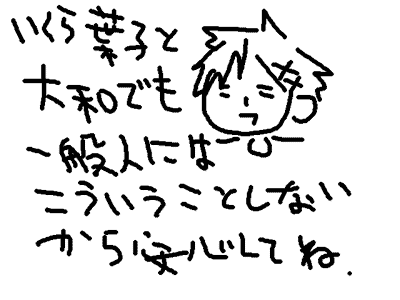 いくら葉子と
大和でも
一般人には
こういうことしない
から安心してね.